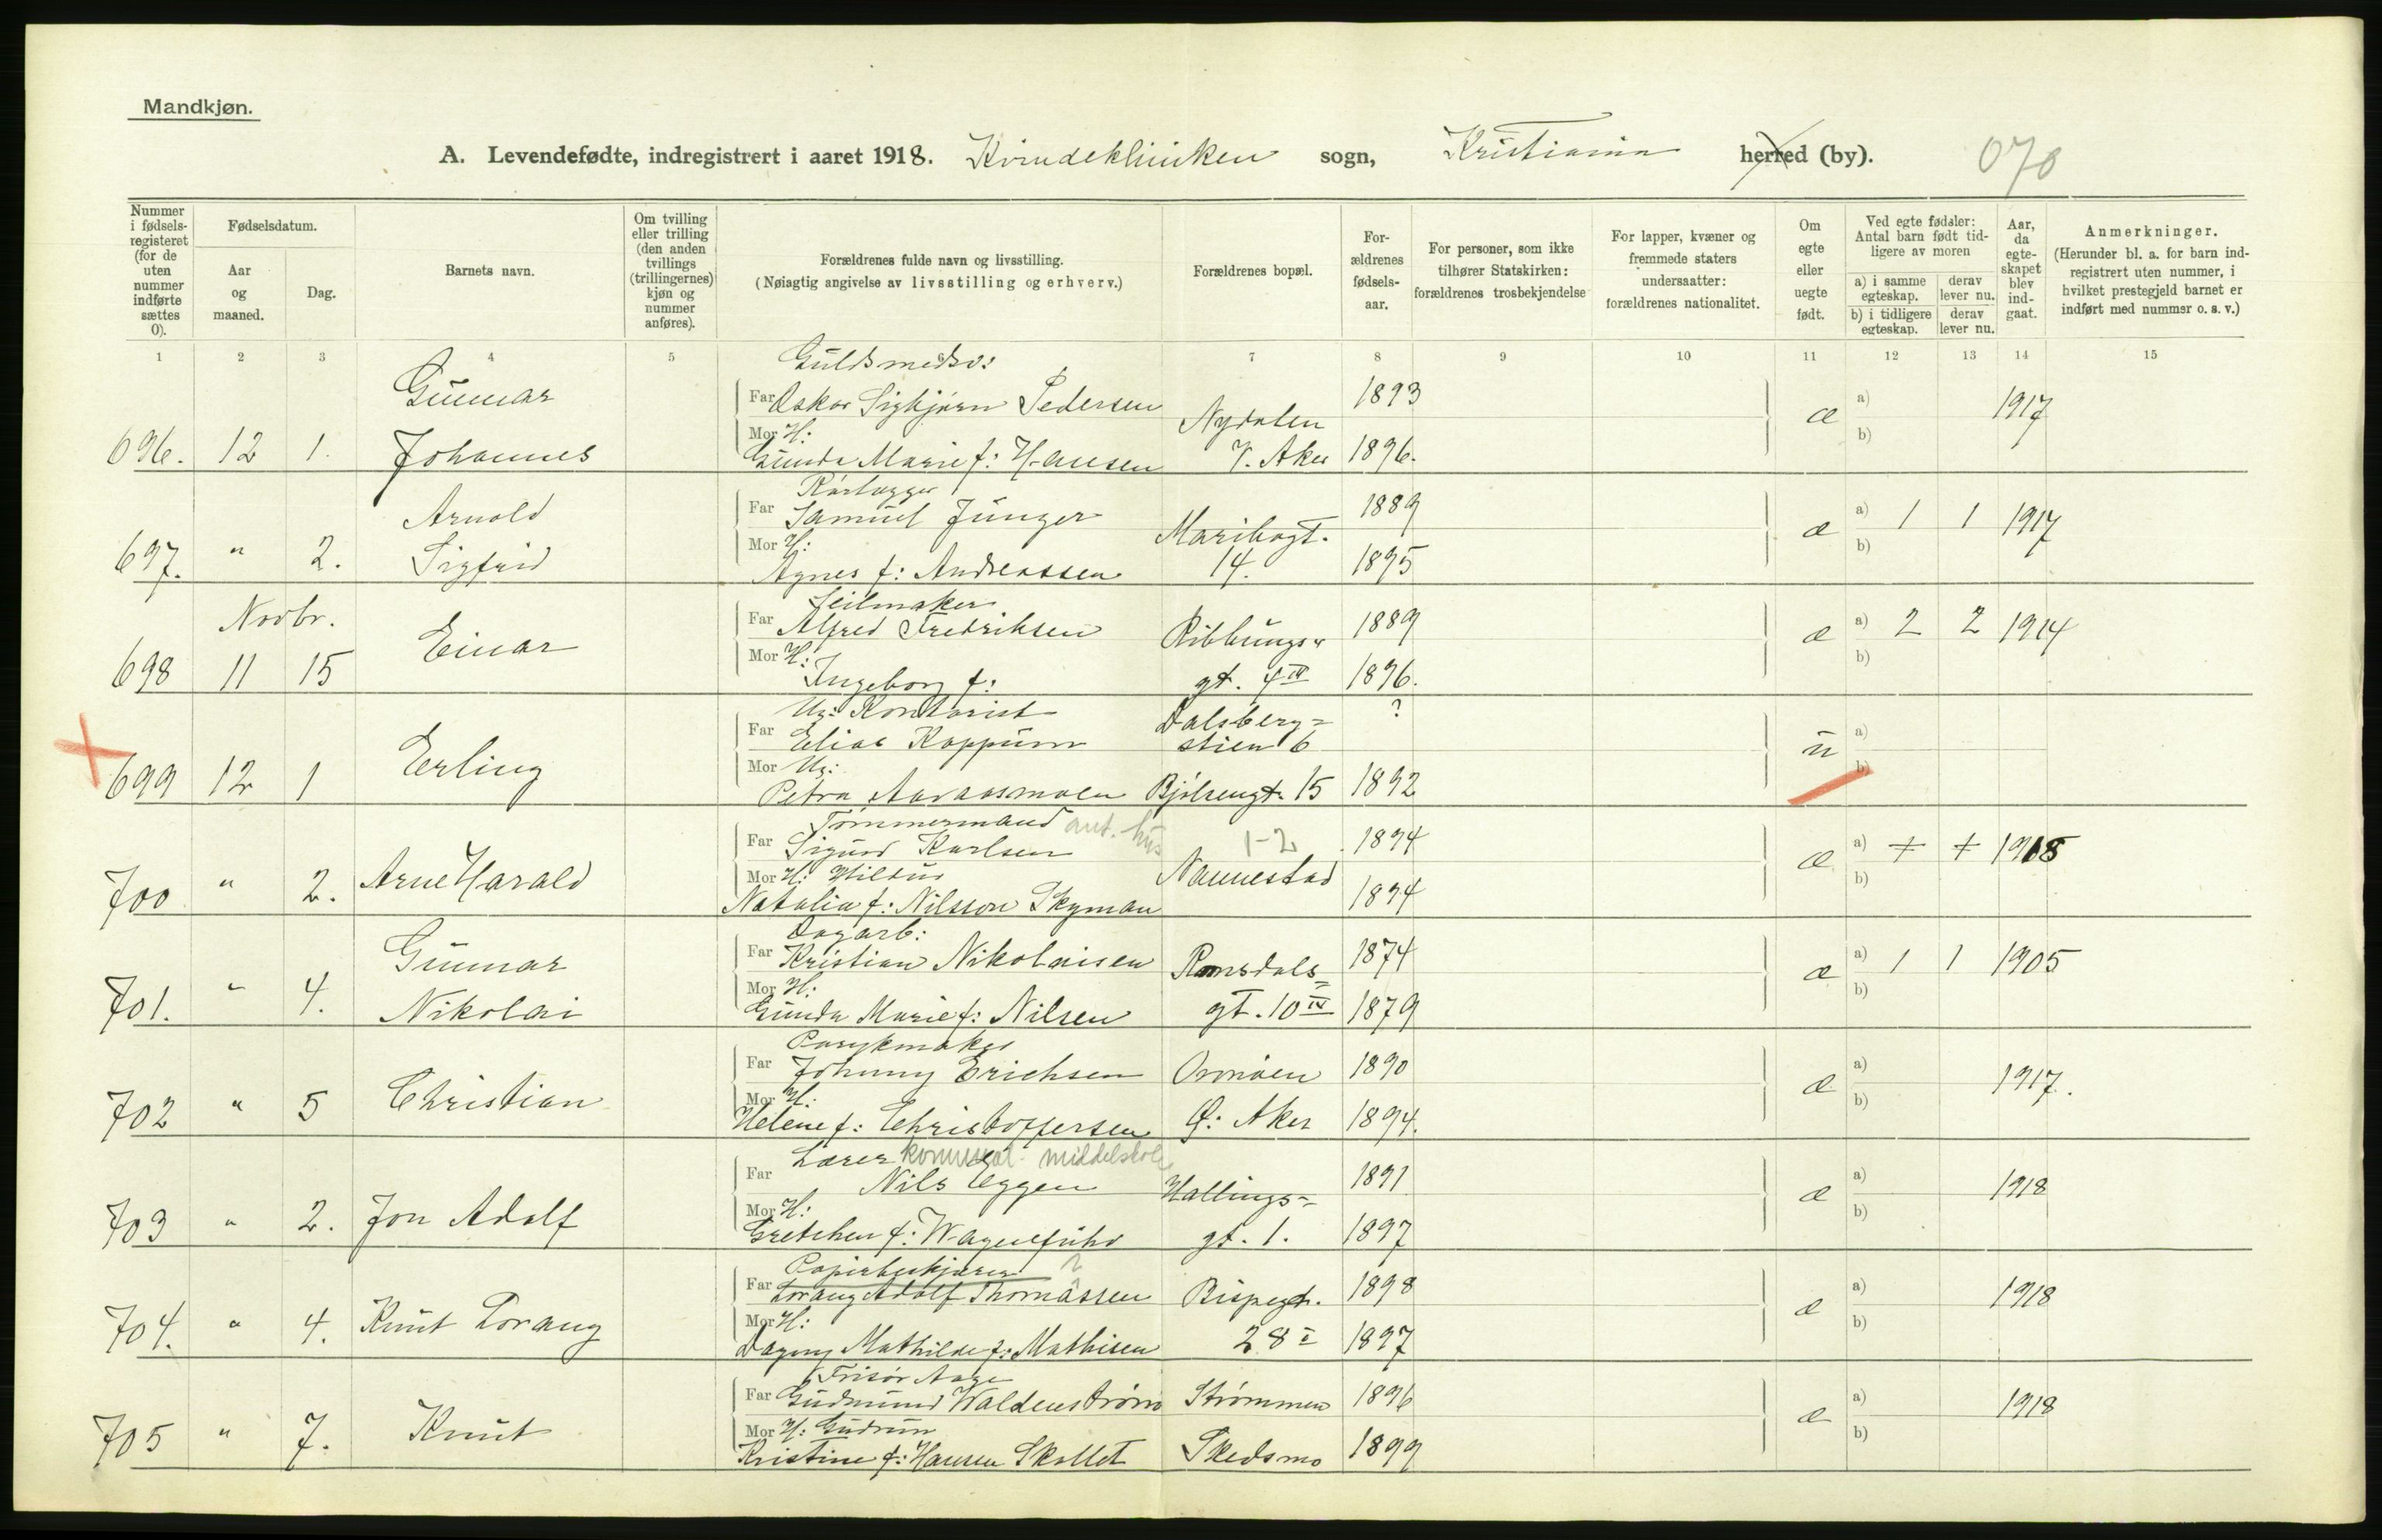 Mandkjøn.
A. Levendefødte, indregistrert i aaret 1918. Kvindeklinikken sogn, Kristiania herred (by). 070
Nummer i fødsels-registeret (for de uten nummer indførte sættes 0).
Fødselsdatum.
Aar og maaned.
Dag.
Barnets navn.
Om tvilling eller trilling (den anden tvillings (trillingernes) kjøn og nummer anføres).
Forældrenes fulde navn og livsstilling.
(Nøiagtig angivelse av livsstilling og erhverv.)
Forældrenes bopæl.
For-ældrenes fødsels-aar.
For personer, som ikke tilhører Statskirken: forældrenes trosbekjendelse
For lapper, kvæner og fremmede staters undersaatter: forældrenes nationalitet.
Om egte eller uegte født.
Ved egte fødsler: Antal barn født tid-ligere av moren
a) i samme egteskap. derav lever nu.
b) i tidligere egteskap. derav lever nu.
Aar, da egte-skapet blev ind-gaat.
Anmerkninger.
(Herunder bl. a. for barn ind-registrert uten nummer, i hvilket prestegjeld barnet er indført med nummer o. s. v.)
1 2 3 4 5 6 7 8 9 10 11 12 13 14 15
Guldsmedsv:
Gunnar Far Oskar Sigbjørn Pedersen 1893
Nydalen æ a) 1917
Mor H: b)
696. 12 1. Johannes Gunda Marie f: Hansen V. Aker 1896.
Rørlægger
Arnold Far Samuel Junger 1889
Maribogt. æ a) 1 1 1917
Mor H: b)
697. " 2. Sigfrid Agnes f: Andreassen 14. 1895
Seilmaker
Novbr. Far Alfred Fredriksen Ribbungs- 1889
Einar æ a) 2 2 1914
Mor H: b)
698 11 15 Ingeborg f: gt. 4 IV 1896.
Ug: Kontorist Dalsberg= ?
Far Elias Koppum stien 6
Erling u a)
Mor Ug: b)
699 12 1 Petra Aavaasmoen Bjølsengt. 15 1892
Tømmermand ant. hus 1-2
Far Sigurd Karlsen 1894
æ a) + + 1918
Mor H: Hildur Nannestad b)
700 " 2. Arne Harald Natalia f: Nilsson Skyman 1894
Dagarb:
Gunnar Far Kristian Nikolaisen Romsdals= 1874
æ a) 1 1 1905
Mor H: b)
701. " 4. Nikolai Gunda Marie f: Nilsen gt. 10 IV 1879
Parykmaker
Far Johnny Erichsen Ormøen 1890
æ a) 1917.
Mor H: b)
702 " 5 Christian Helene f: Christoffersen Ø: Aker 1894.
Lærer kommunal middelskole
Far Nils Eggen 1891
Hallings= æ a) 1918
Mor H: b)
703 " 2. Jon Adolf Gretchen f: Wagenführ gt. 1. 1897
Papirbeskjærer ?
Far Lorang Adolf Thomassen Bispegt. 1898
æ a) 1918
Mor H: b)
704. " 4. Knut Lorang Dagny Mathilde f: Mathisen 28 I 1897
Frisør Aage
Far Gudmund Waldenstrøm Strømmen 1896
æ a) 1918
Mor H: Gudrun b)
705 " 7. Knut Kristine f: Hansen Skallet Skedsmo 1899